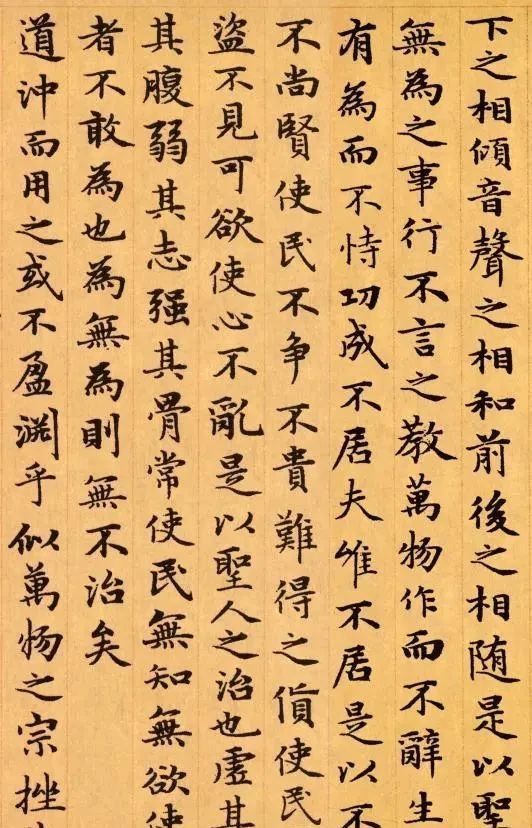 下之相傾音聲之相和前後之相随是以聖
無為之事行不言之教萬物作而不辭生
有為而不恃功成不居夫唯不居是以不
不尚賢使民不争不貴難得之貨使民
盜不見可欲使心不亂是以聖人之治也虛其
其腹弱其志强其骨常使民無知無欲使
者不敢為也為無為則無不治矣
道沖而用之或不盈淵乎似萬物之宗挫